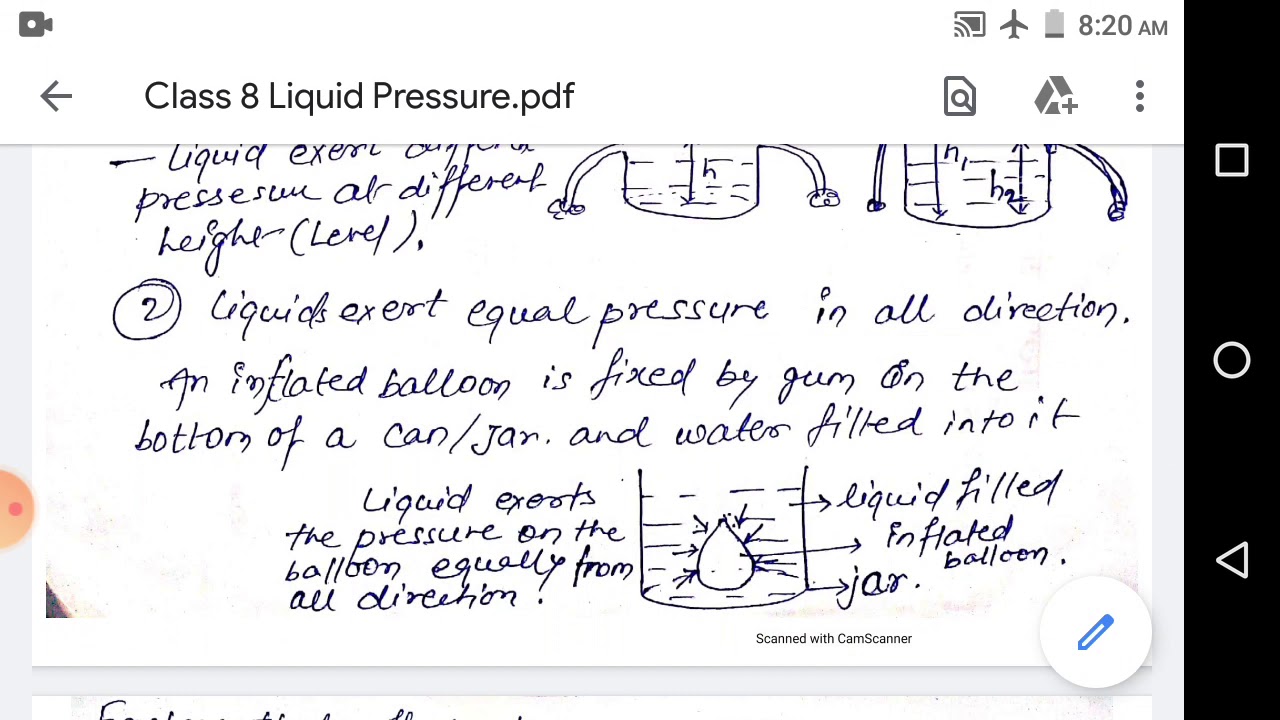 8:20 AM
Class 8 Liquid Pressure.pdf
— Liquid exert
pressesure at different
height (Level).
h
h1
h2
2 Liquids exert equal pressure in all direction.
An inflated balloon is fixed by gum on the
bottom of a can/jar. and water filled into it
Liquid exerts
the pressure on the
balloon equally from
all direction.
liquid filled
inflated
balloon.
jar.
Scanned with CamScanner